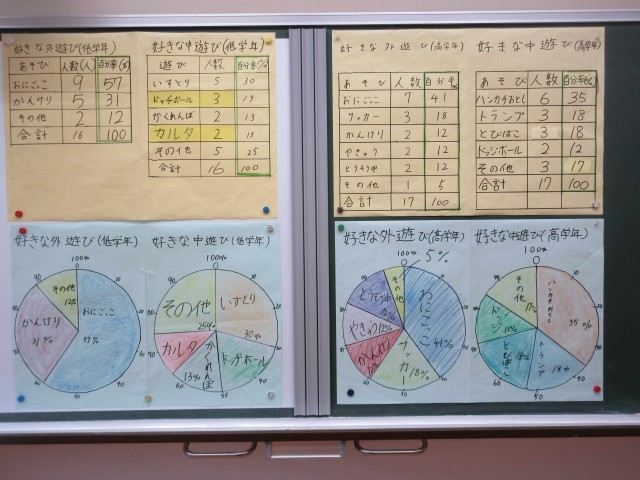 好きな外遊び(低学年)
あそび 人数(人) 百分率(%)
おにごっこ 9 57
かんけり 5 31
その他 2 12
合計 16 100
好きな中遊び(低学年)
遊び 人数 百分率(%)
いすとり 5 30
ドッチボール 3 19
かくれんぼ 2 13
カルタ 2 13
その他 5 25
合計 16 100
好きな外遊び(高学年)
あそび 人数 百分率%
おにごっこ 7 41
サッカー 3 18
かんけり 2 12
やきゅう 2 12
どろぼう中 2 12
その他 1 5
合計 17 100
好きな中遊び(高学年)
あそび 人数 百分率(%)
ハンカチおとし 6 35
トランプ 3 18
とびばこ 3 18
ドッジボール 2 12
その他 3 17
合計 17 100
好きな外遊び(低学年)
100%
0
その他
12%
おにごっこ
かんけり
31%
好きな中遊び(低学年)
100%
0
その他
25%
いすとり
30%
カルタ
かくれんぼ
13%
ドッチボール
好きな外遊び(高学年)
100%
0
5%
その他
おにごっこ
41%
サッカー
18%
かんけり
やきゅう12%
好きな中遊び(高学年)
100%
0
その他
17%
ハンカチおとし
35%
トランプ
18%
とびばこ
18%